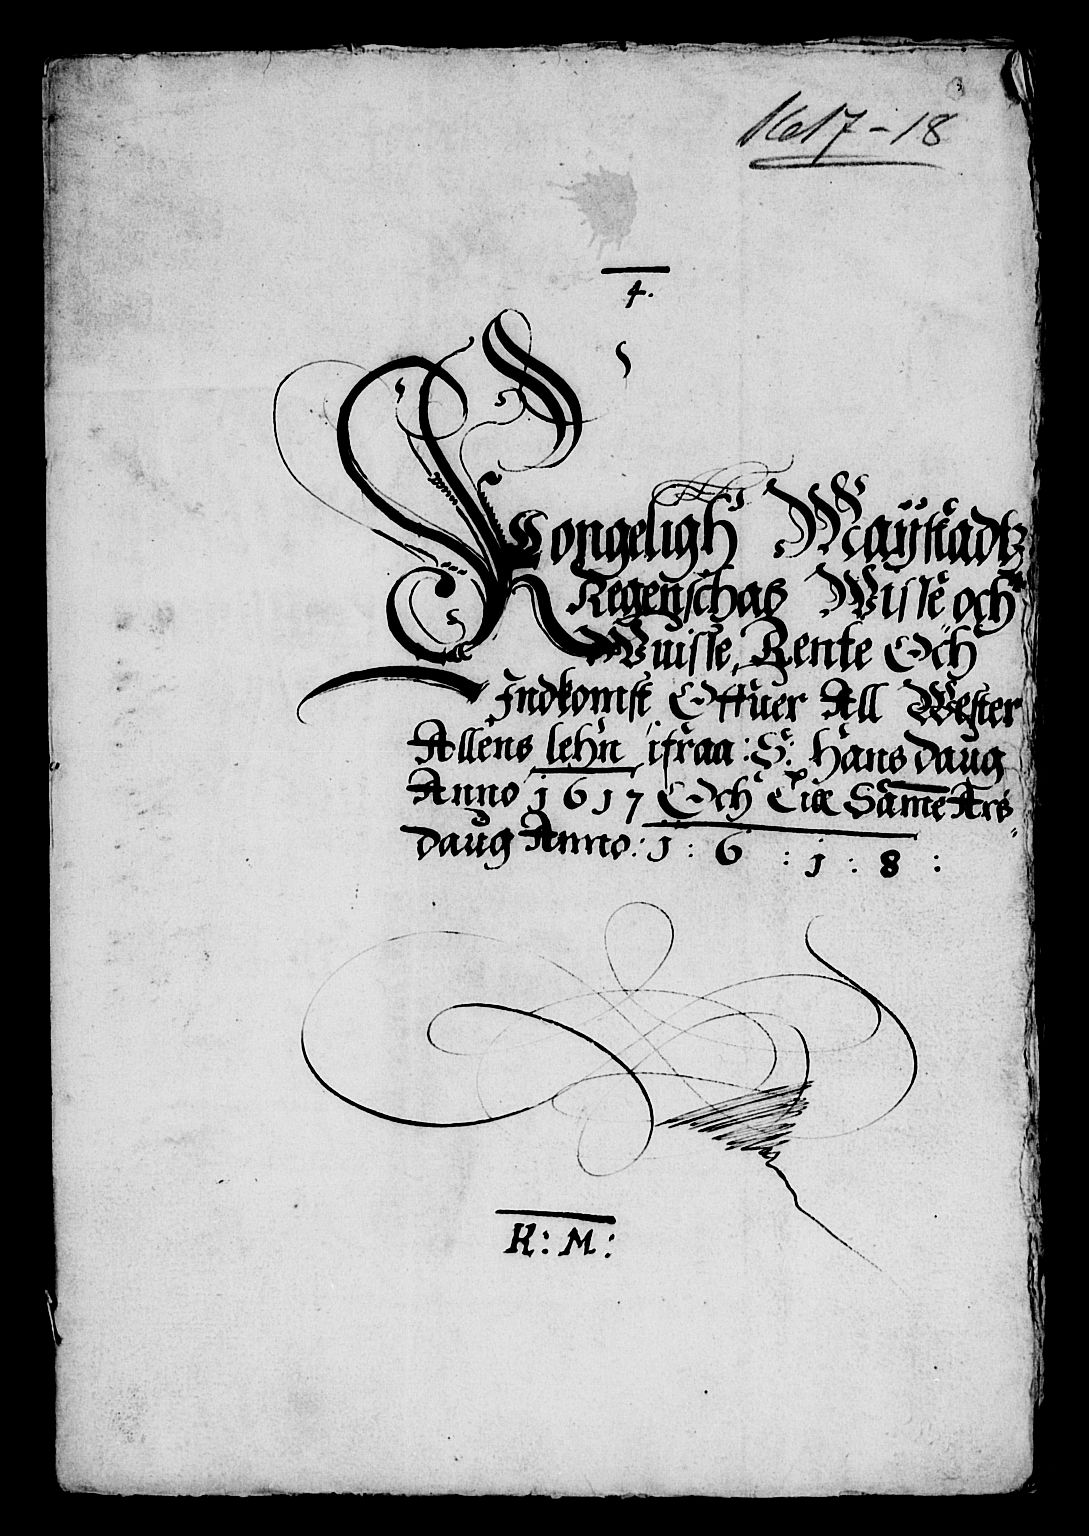 1617-18
4.
Kongeligh Mayestadtz
Regenschas Wisse och
Wuisse, Rente Och
Indkomst Offuer All Wester
Allens lehn ifraa: S: Hans daug
Anno 1617 Och Till Samme Ars
daug Anno: 1: 6: 1: 8:
K: M: